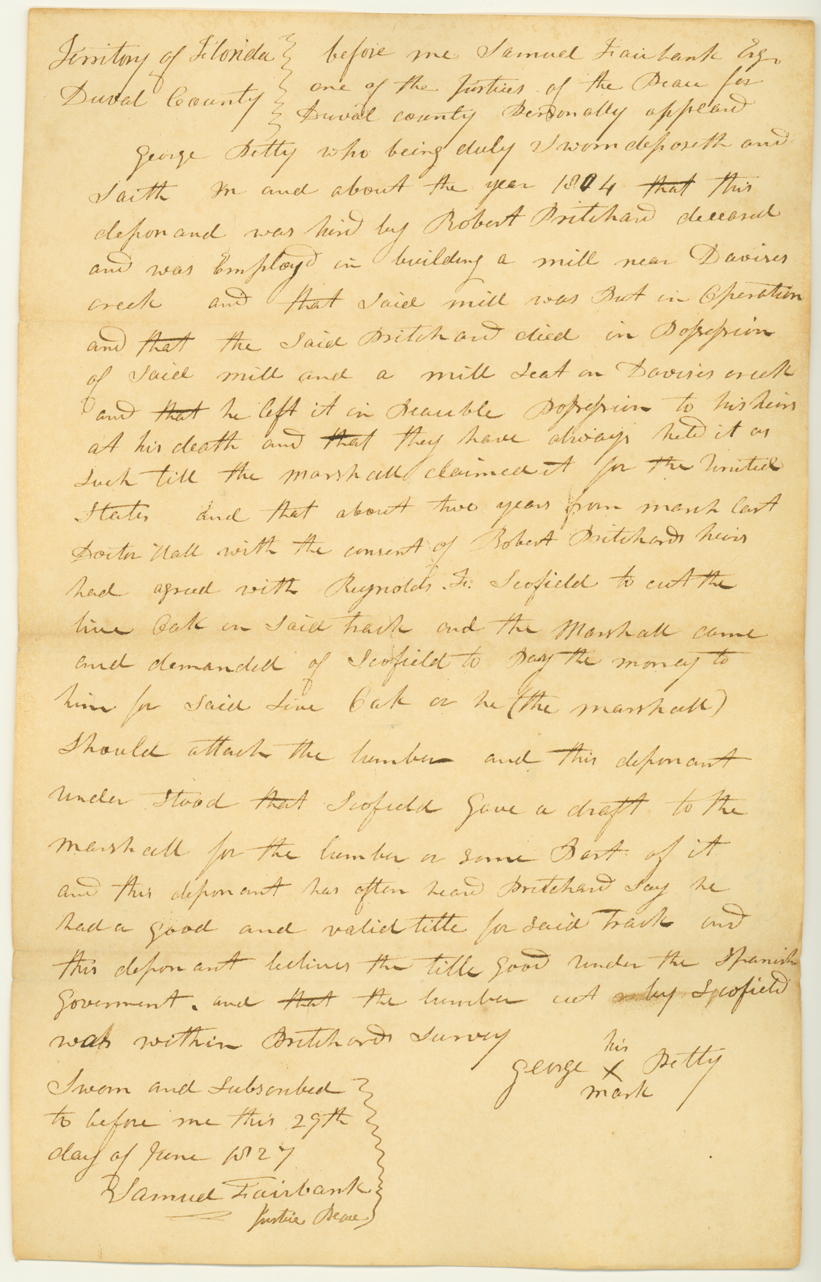 Territory of Florida } before me Samuel Fairbank Esq.
Duval County } one of the Justices of the Peace for
Duval county Personally appeard
George Petty who being duly Sworn deposeth and
Saith in and about the year 1804 that this
deponand was hird by Robert Pritchard deceased
and was Employd in building a mill near Davises
creek and that Said mill was Put in Operation
and that the Said Pritchard died in Possession
of Said mill and a mill Seat on Davises creek
and that he left it in Peacible Possession to his heirs
at his death and that they have always held it as
Such till the marshall claimed it for the United
States and that about two years from march last
Doctor Hall with the consent of Robert Pritchards heirs
had agreed with Reynolds Scofield to cut the
live Oak on Said track and the Marshall came
and demanded of Scofield to Pay the money to
him for Said Live Oak or he (the marshall)
Should attach the lumber and this deponant
under Stood that Scofield Gave a draft to the
marshall for the lumber or some Part of it
and this deponant has often heard Pritchard Say he
had a good and valid title for said Track and
this deponant believes the title good under the Spanish
Goverment. and that the lumber cut by Scofield
was within Pritchards Survey
his
George X Petty
mark
Sworn and Subscribed
to before me this 29th
day of June 1827
Samuel Fairbank
Justice Peace